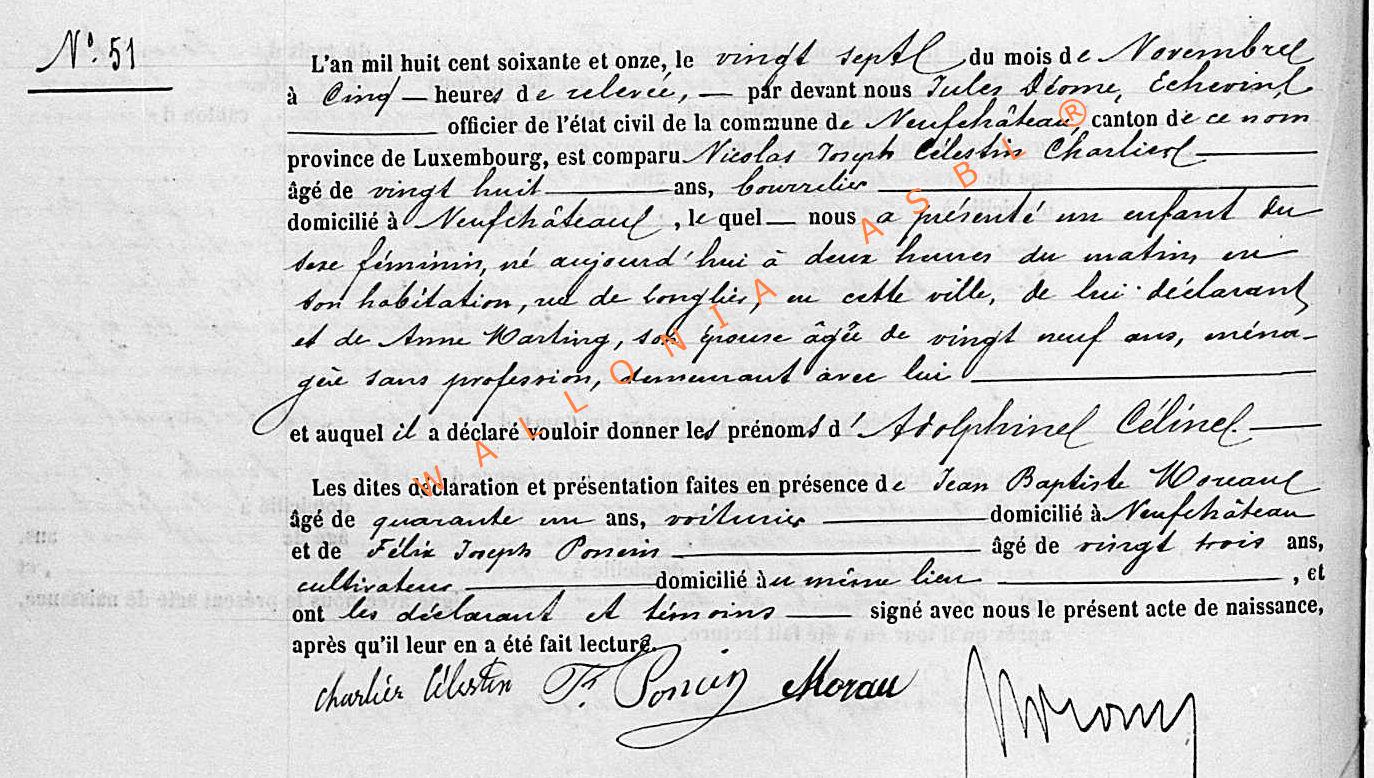 N° 51
L'an mil huit cent soixante et onze, le vingt sept du mois de Novembre
à Cinq — heures de relevée, — par devant nous Jules Déome, Echevin,
officier de l'état civil de la commune de Neufchâteau, canton de ce nom
province de Luxembourg, est comparu Nicolas Joseph Célestin Charlier
âgé de vingt huit ans, bourrelier
domicilié à Neufchâteau, le quel — nous a présenté un enfant du
sexe féminin, né aujourd'hui à deux heures du matin, en
son habitation, rue de Longlier, en cette ville, de lui déclarant
et de Anne Marting, son épouse âgée de vingt neuf ans, ména-
gère sans profession, demeurant avec lui
et auquel il a déclaré vouloir donner les prénoms d'Adolphine Céline
Les dites déclaration et présentation faites en présence de Jean Baptiste Moreau
âgé de quarante un ans, voiturier domicilié à Neufchâteau
et de Félix Joseph Poncin âgé de vingt trois ans,
cultivateur domicilié au même lieu, et
ont les déclarant et témoins signé avec nous le présent acte de naissance,
après qu'il leur en a été fait lecture.
Charlier Célestin Poncin Morau
WALLONIA ASBL ®